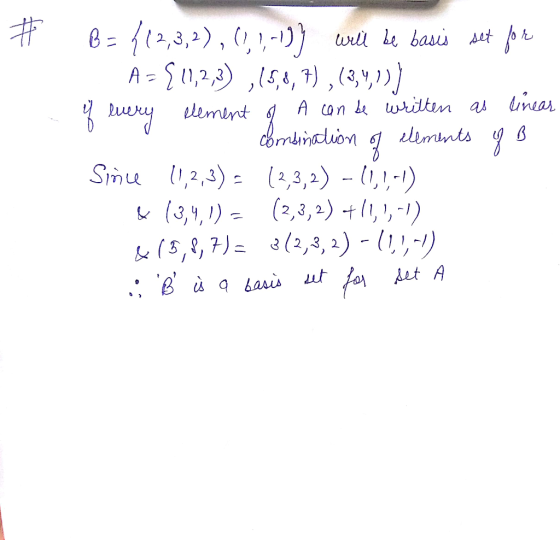 # B = {(2,3,2), (1,1,-1)} will be basis set for
A = {(1,2,3), (5,8,7), (3,4,1)}
if every element of A can be written as linear
combination of elements of B
Since (1,2,3) = (2,3,2) - (1,1,-1)
& (3,4,1) = (2,3,2) + (1,1,-1)
& (5,8,7) = 3(2,3,2) - (1,1,-1)
∴ 'B' is a basis set for set A